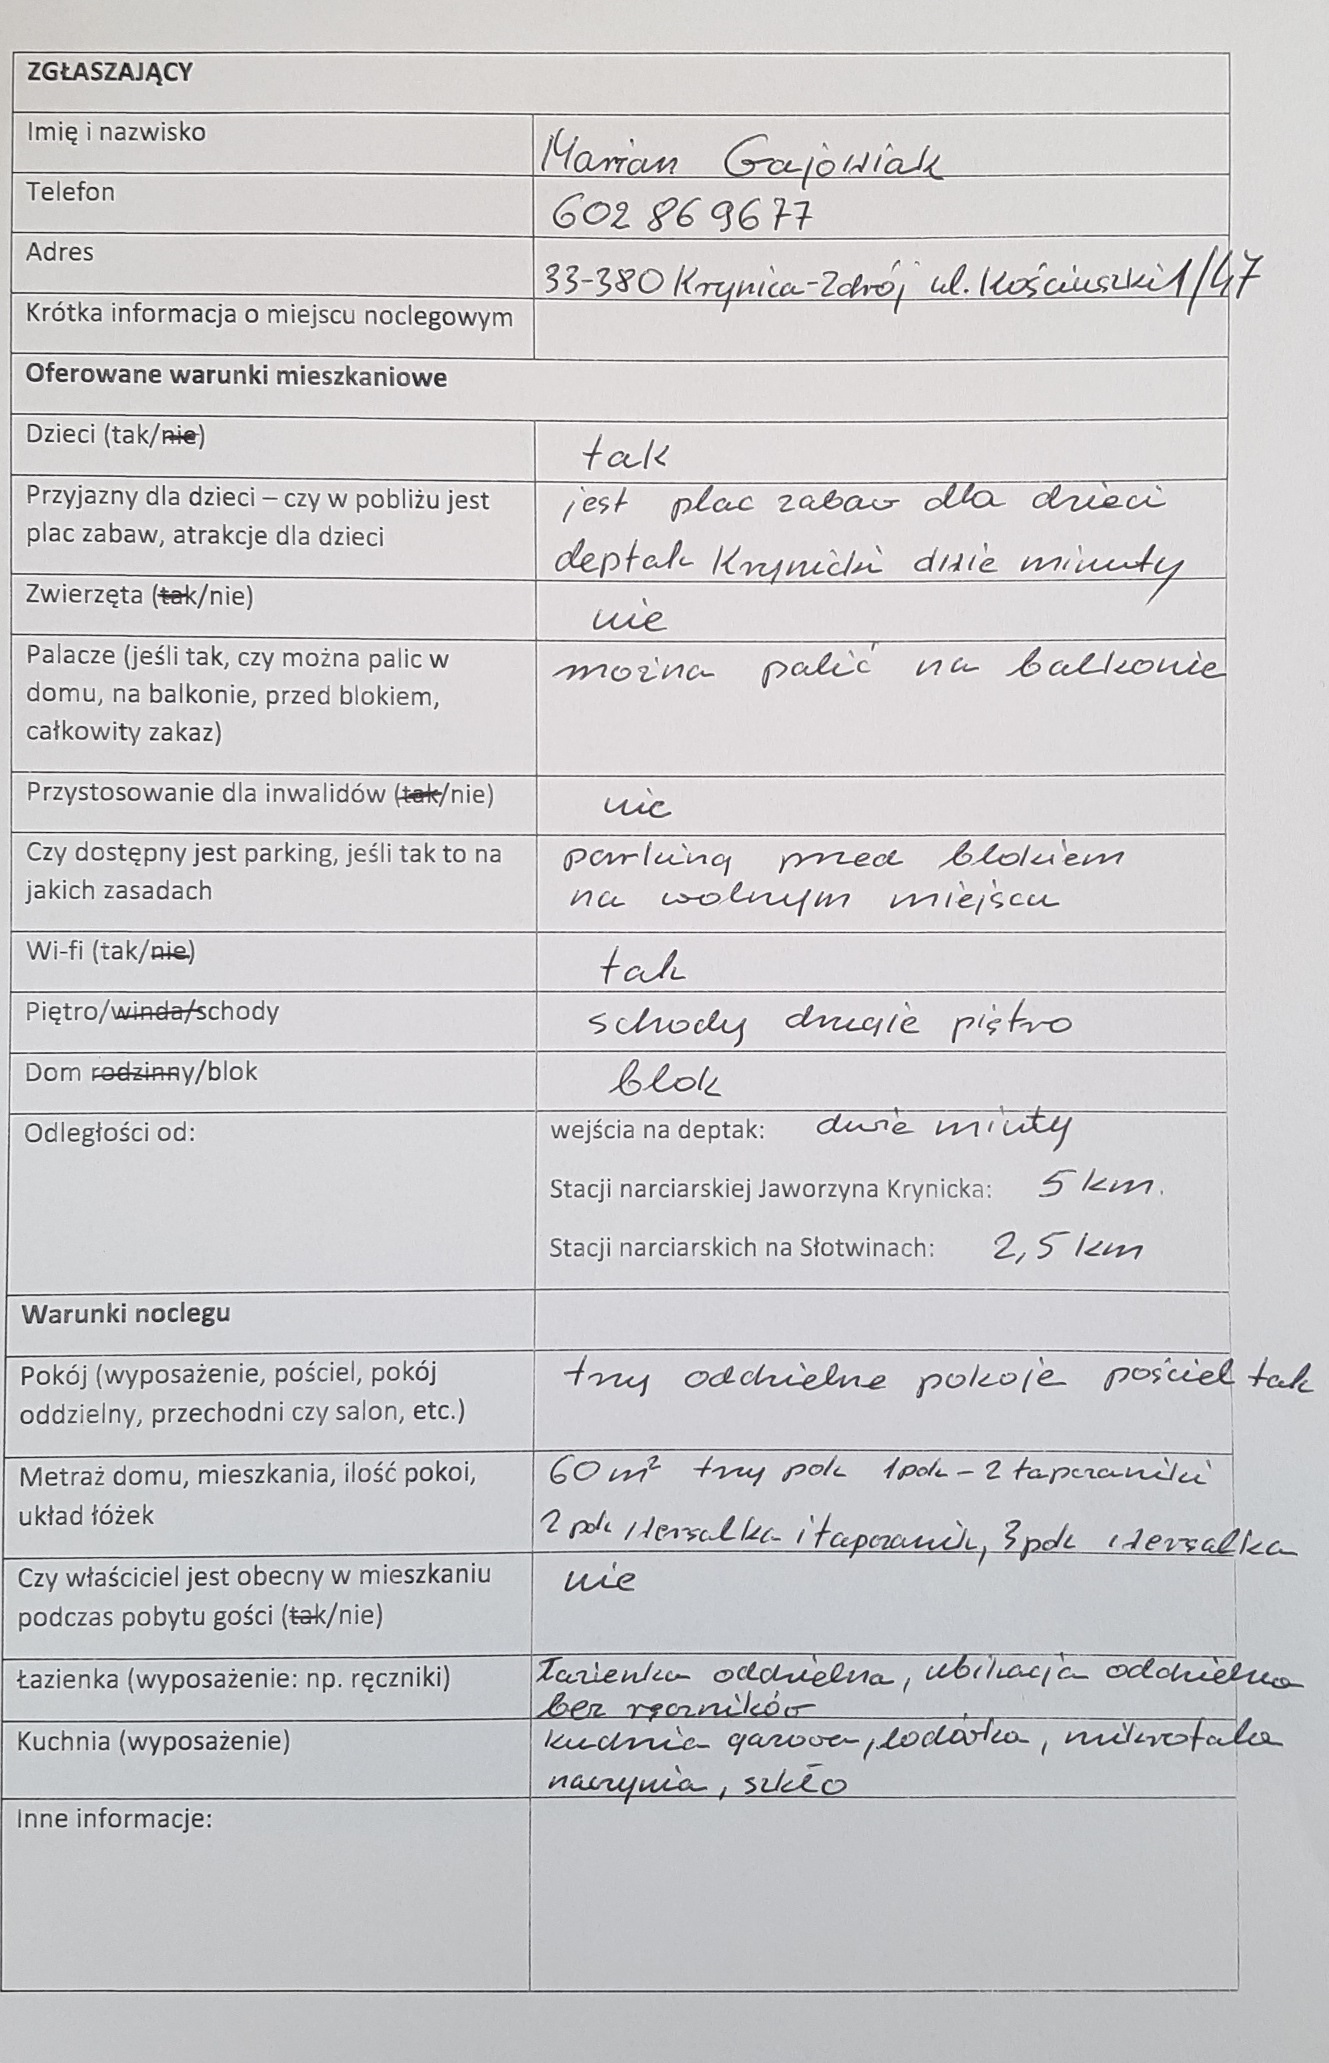 ZGŁASZAJĄCY
Imię i nazwisko
Marian Gajowiak
Telefon
602 86 96 77
Adres
33-380 Krynica-Zdrój ul. Kościuszki 1/47
Krótka informacja o miejscu noclegowym
Oferowane warunki mieszkaniowe
Dzieci (tak/nie)
tak
Przyjazny dla dzieci – czy w pobliżu jest
plac zabaw, atrakcje dla dzieci
jest plac zabaw dla dzieci
deptak Krynicki dwie minuty
Zwierzęta (tak/nie)
nie
Palacze (jeśli tak, czy można palic w
domu, na balkonie, przed blokiem,
całkowity zakaz)
można palić na balkonie
Przystosowanie dla inwalidów (tak/nie)
nie
Czy dostępny jest parking, jeśli tak to na
jakich zasadach
parking przed blokiem
na wolnym miejscu
Wi-fi (tak/nie)
tak
Piętro/winda/schody
schody drugie piętro
Dom rodzinny/blok
blok
Odległości od:
wejścia na deptak: dwie miuty
Stacji narciarskiej Jaworzyna Krynicka: 5 km.
Stacji narciarskich na Słotwinach: 2,5 km
Warunki noclegu
Pokój (wyposażenie, pościel, pokój
oddzielny, przechodni czy salon, etc.)
trzy oddzielne pokoje pościel tak
Metraż domu, mieszkania, ilość pokoi,
układ łóżek
60 m² trzy pok 1pok – 2 tapczaniki
2 pok wersalka i tapczanik, 3 pok wersalka
Czy właściciel jest obecny w mieszkaniu
podczas pobytu gości (tak/nie)
nie
Łazienka (wyposażenie: np. ręczniki)
Łazienka oddzielna, ubikacja oddzielna
bez ręczników
Kuchnia (wyposażenie)
kuchnia gazowa, lodówka, mikrofala
naczynia, szkło
Inne informacje: